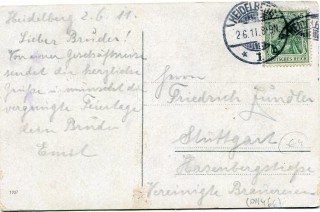 Heidelberg 2.6.11.
Lieber Bruder!
Von einer Geschäftsreise
sendet die herzlichen
Grüße u. wünscht dir
vergnügte Feiertage
dein Bruder
Ernst
HEIDELBERG
2.6.11. 8-9N
* 1.
Herrn
Friedrich Zündler
Stuttgart
Hasenbergstraße
Vereinigte Brauereien